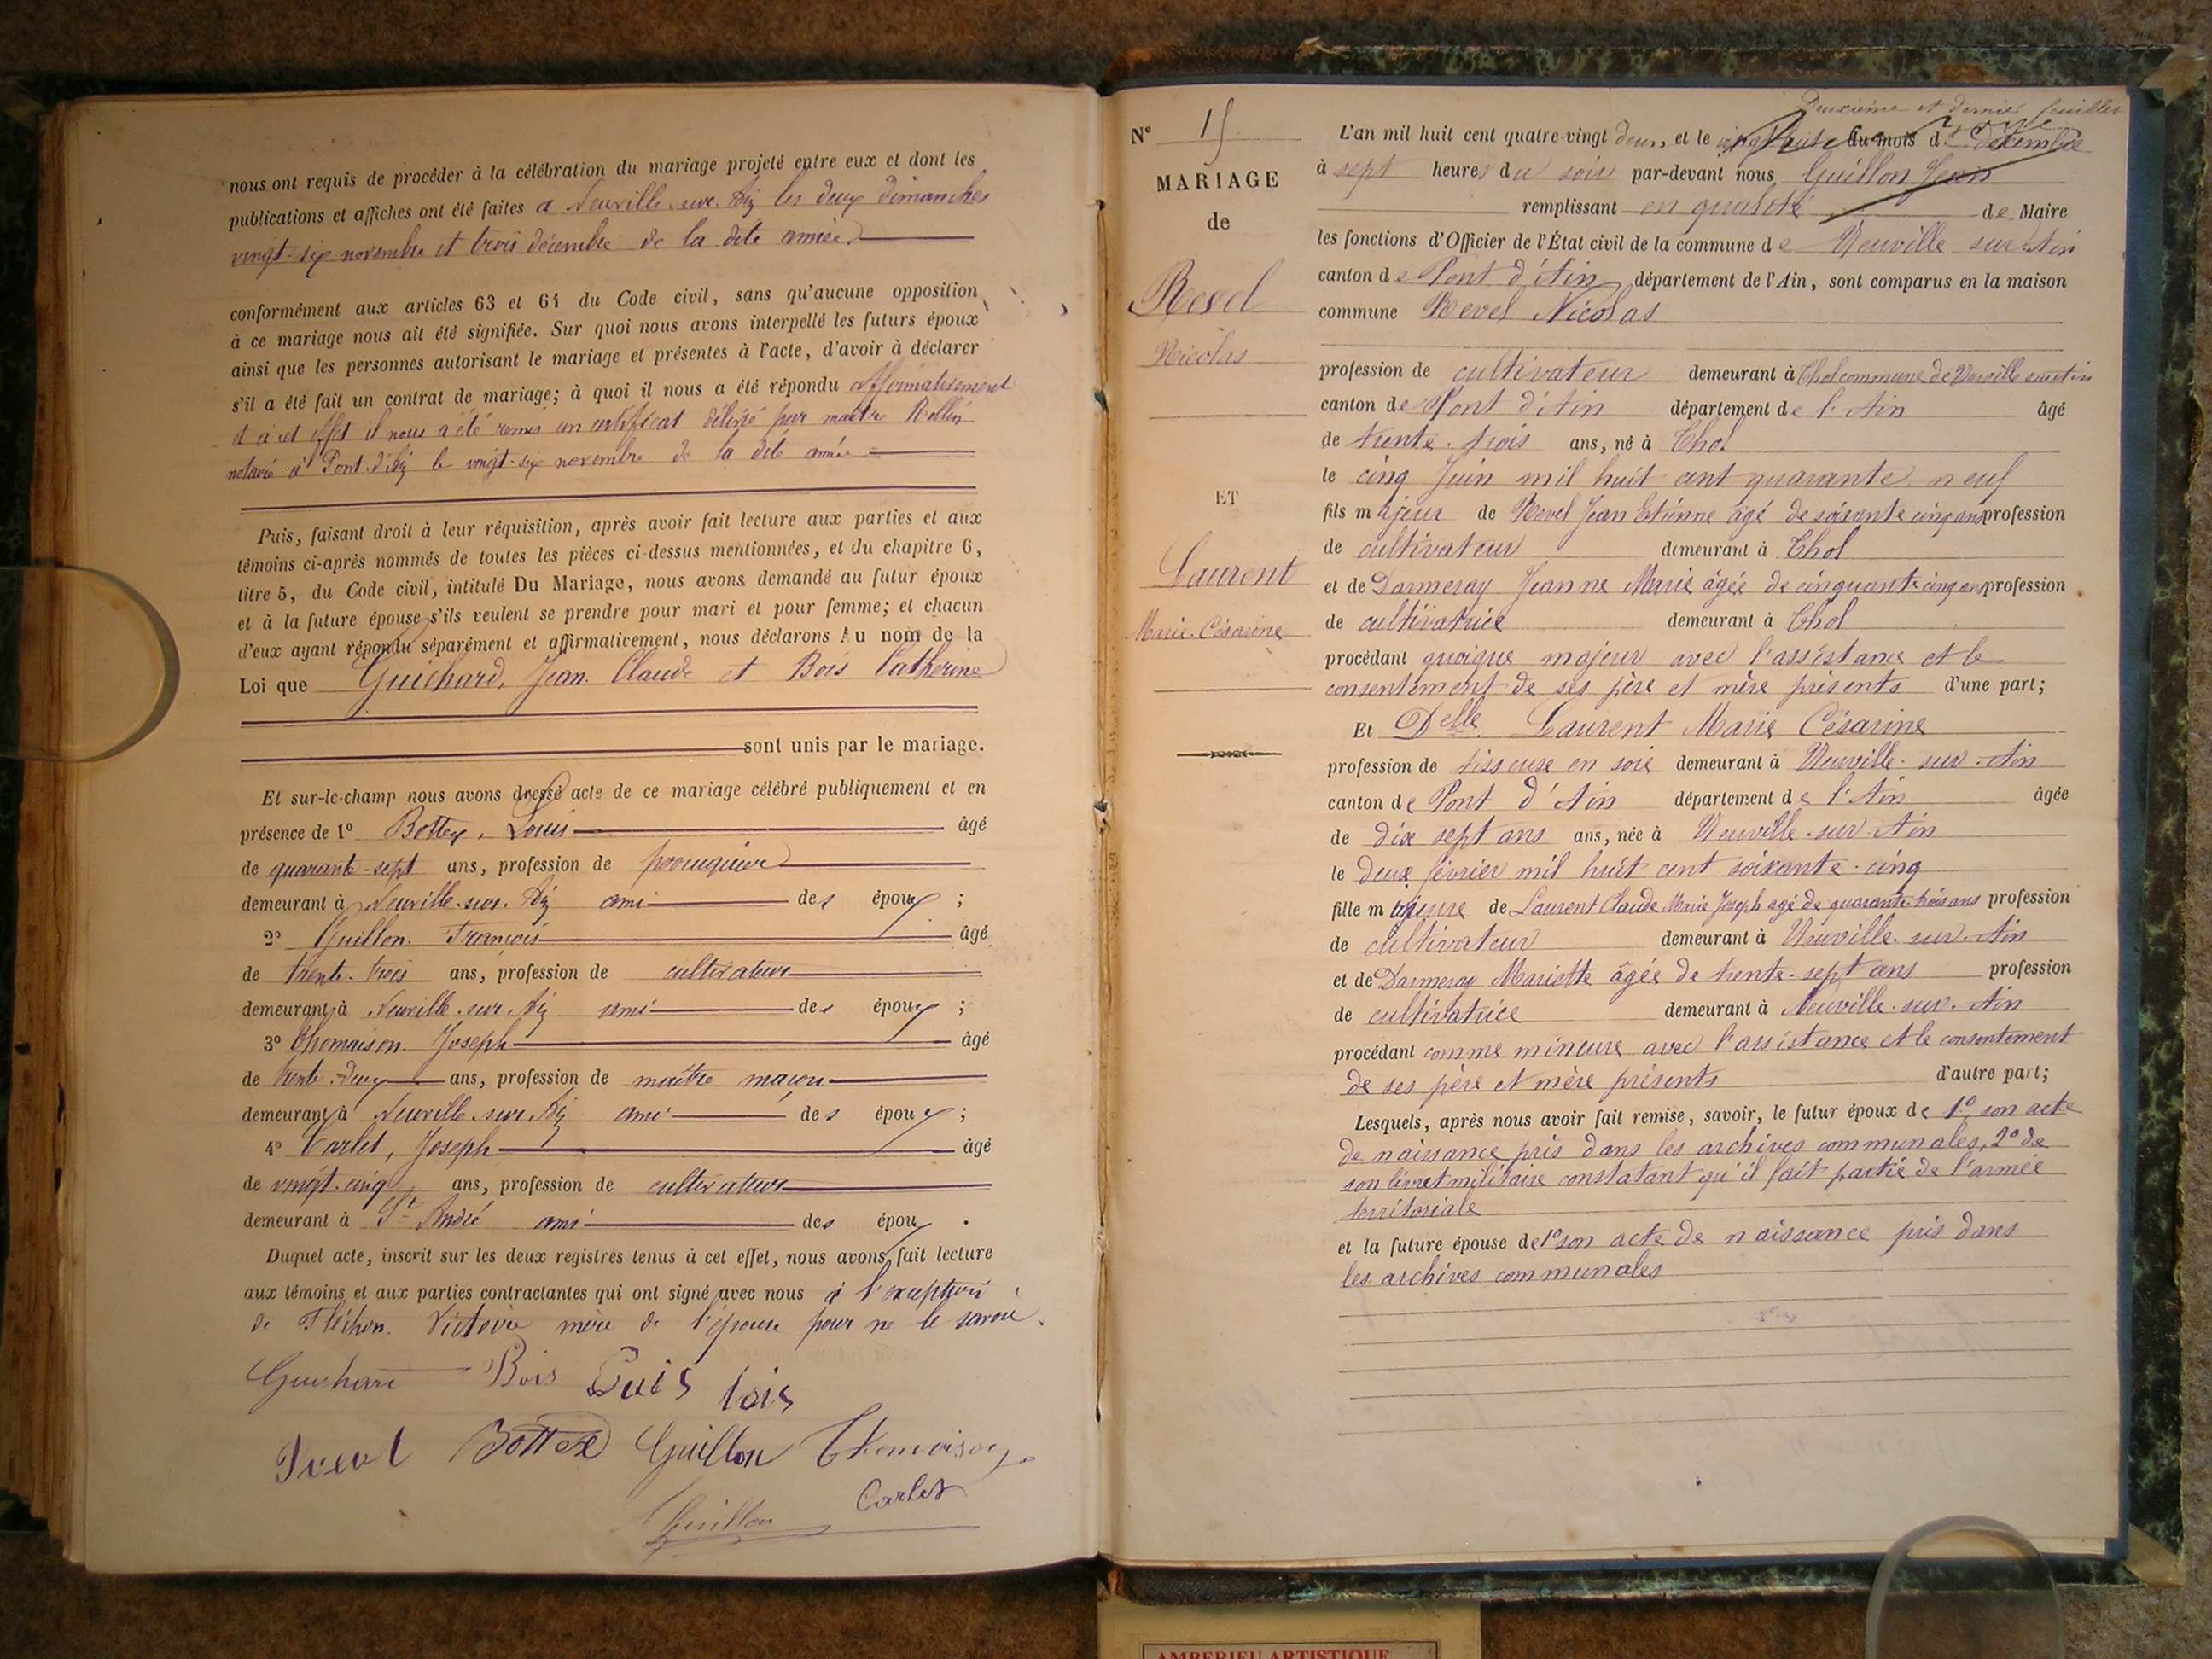 nous ont requis de procéder à la célébration du mariage projeté entre eux et dont les
publications et affiches ont été faites à Neuville sur Ain les deux dimanches
vingt-six novembre et trois décembre de la dite année
conformément aux articles 63 et 64 du Code civil, sans qu'aucune opposition
à ce mariage nous ait été signifiée. Sur quoi nous avons interpellé les futurs époux
ainsi que les personnes autorisant le mariage et présentes à l'acte, d'avoir à déclarer
s'il a été fait un contrat de mariage; à quoi il nous a été répondu affirmativement
et à cet effet il nous a été remis un certificat délivré par maître Rollin
notaire à Pont d'Ain le vingt-six novembre de la dite année
Puis, faisant droit à leur réquisition, après avoir fait lecture aux parties et aux
témoins ci-après nommés de toutes les pièces ci-dessus mentionnées, et du chapitre 6,
titre 5, du Code civil, intitulé Du Mariage, nous avons demandé au futur époux
et à la future épouse s'ils veulent se prendre pour mari et pour femme; et chacun
d'eux ayant répondu séparément et affirmativement, nous déclarons Au nom de la
Loi que Guichard, Jean Claude et Bois Catherine
sont unis par le mariage.
Et sur-le-champ nous avons dressé acte de ce mariage célébré publiquement et en
présence de 1° Bottex, Louis âgé
de quarante-sept ans, profession de
demeurant à Neuville-sur-Ain ami des époux ;
2° Guillon François âgé
de trente-trois ans, profession de cultivateur
demeurant à Neuville-sur-Ain ami des époux ;
3° Thomaison Joseph âgé
de trente-deux ans, profession de maître maçon
demeurant à Neuville-sur-Ain ami des époux ;
4° Carlet, Joseph âgé
de vingt-cinq ans, profession de cultivateur
demeurant à St André ami des époux .
Duquel acte, inscrit sur les deux registres tenus à cet effet, nous avons fait lecture
aux témoins et aux parties contractantes qui ont signé avec nous à l'exception
de Fléchon Victoire mère de l'épouse pour ne le savoir.
Guichard Bois
Bottex Guillon Thomaison
Carlet
Guillon
Deuxième et dernier feuillet
N° 15
MARIAGE
de
Revel
Nicolas
ET
Laurent
Marie-Césarine
L'an mil huit cent quatre-vingt deux, et le vingt huit du mois de décembre
à sept heures du soir par-devant nous Guillon Jean
remplissant en qualité de Maire
les fonctions d'Officier de l'État civil de la commune de Neuville sur Ain
canton de Pont d'Ain département de l'Ain, sont comparus en la maison
commune Revel Nicolas
profession de cultivateur demeurant à Thol commune de Neuville sur Ain
canton de Pont d'Ain département de l'Ain âgé
de trente-trois ans, né à Thol
le cinq Juin mil huit cent quarante neuf
fils majeur de Revel Jean Etienne âgé de soixante cinq ans profession
de cultivateur demeurant à Thol
et de Darmeray Jeanne Marie âgée de cinquante-cinq ans profession
de cultivatrice demeurant à Thol
procédant quoique majeur avec l'assistance et le
consentement de ses père et mère présents d'une part;
Et Delle Laurent Marie Césarine
profession de tisseuse en soie demeurant à Neuville-sur-Ain
canton de Pont d'Ain département de l'Ain âgée
de dix sept ans ans, née à Neuville-sur-Ain
le deux février mil huit cent soixante-cinq
fille mineure de Laurent Claude Marie Joseph agé de quarante-trois ans profession
de cultivateur demeurant à Neuville-sur-Ain
et de Darmeray Mariette âgée de trente-sept ans profession
de cultivatrice demeurant à Neuville-sur-Ain
procédant comme mineure avec l'assistance et le consentement
de ses père et mère présents d'autre part;
Lesquels, après nous avoir fait remise, savoir, le futur époux de 1° son acte
de naissance pris dans les archives communales, 2° de
son livret militaire constatant qu'il fait partie de l'armée
territoriale
et la future épouse de 1° son acte de naissance pris dans
les archives communales
AMBERIEU ARTISTIQUE